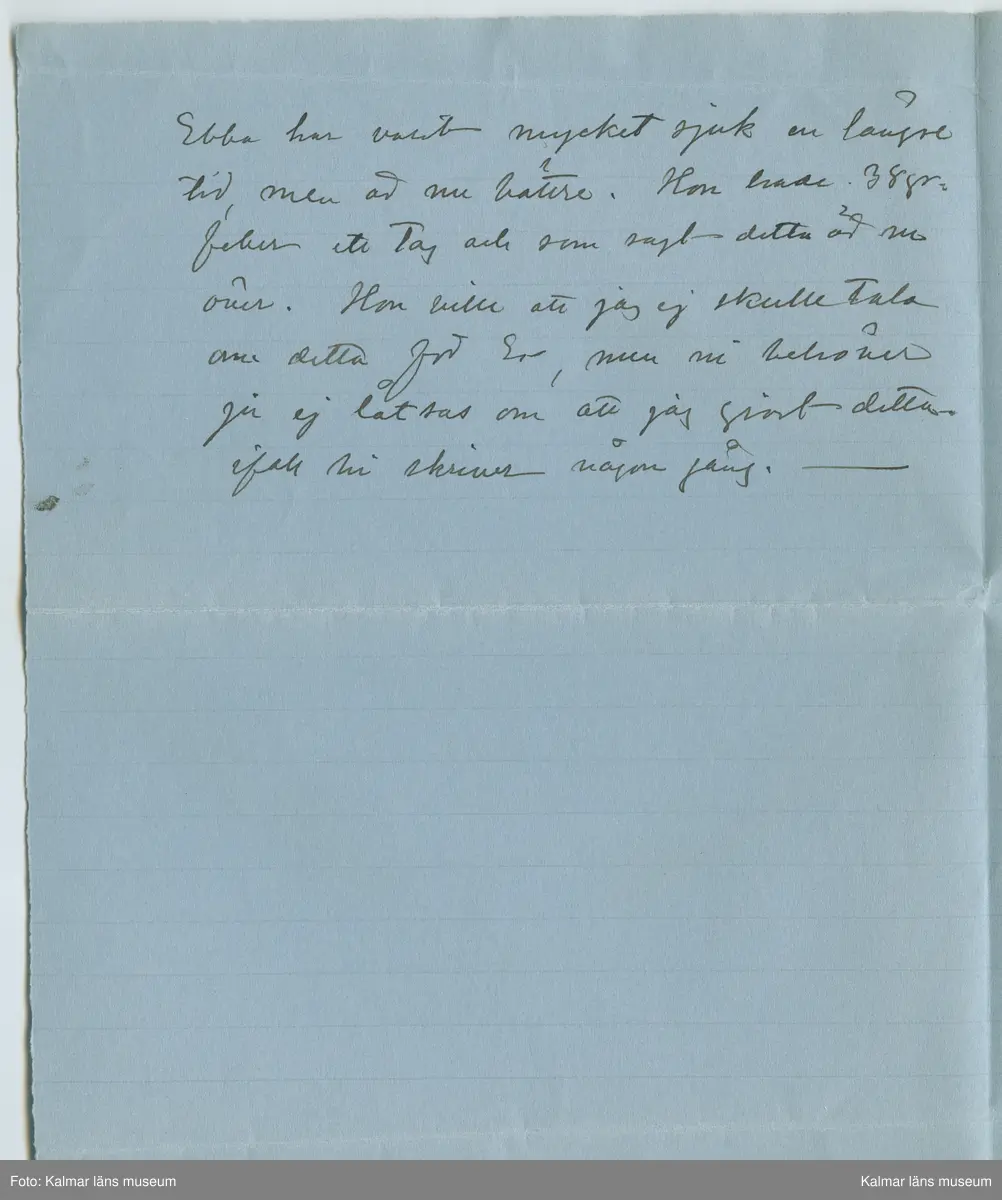 Ebba har varit mycket sjuk en längre
tid, men är nu bättre. Hon hade 38 gr.
feber ett tag och som sagt detta är nu
över. Hon ville att jag ej skulle tala
om detta för Er, men ni behöver
ju ej låtsas om att jag gjort detta
ifall ni skriver någon gång. —
Foto: Kalmar läns museum
Kalmar läns museum